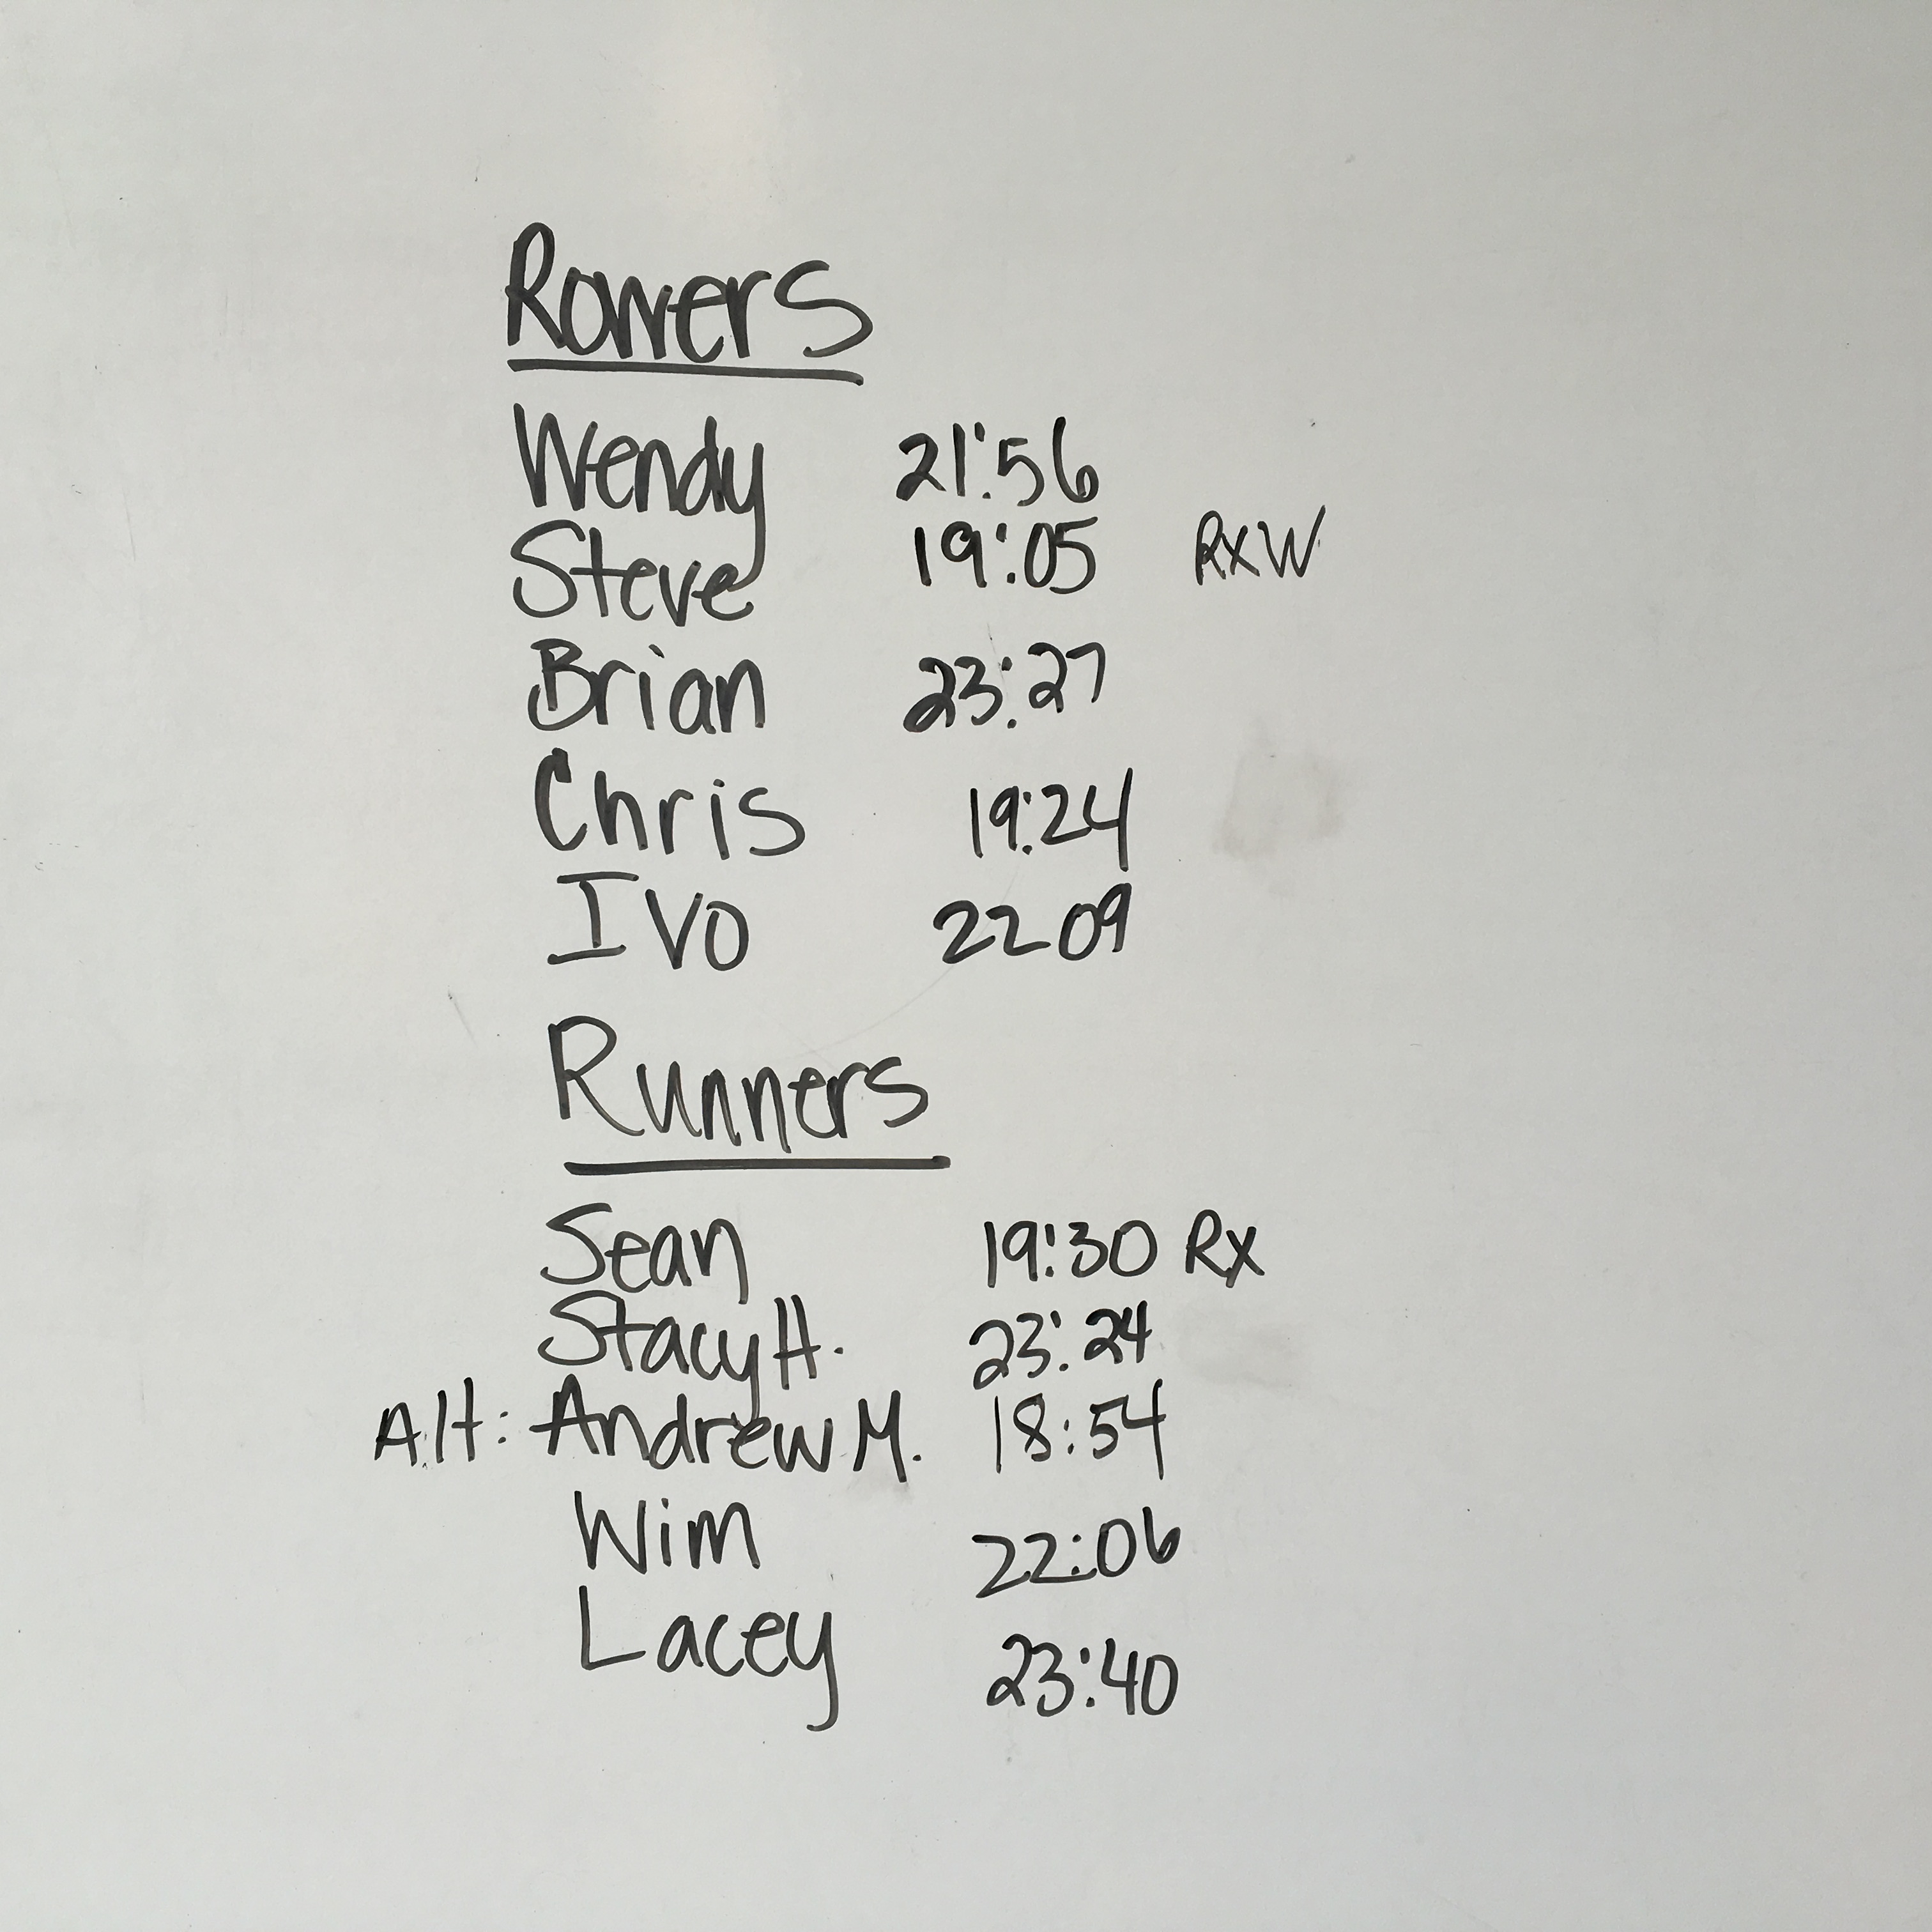 Rowers
Wendy 21:56
Steve 19:05 RXW
Brian 23:27
Chris 19:24
IVO 22 09
Runners
Sean 19:30 RX
Stacy H. 23:24
Alt: Andrew M. 18:54
Wim 22:06
Lacey 23:40